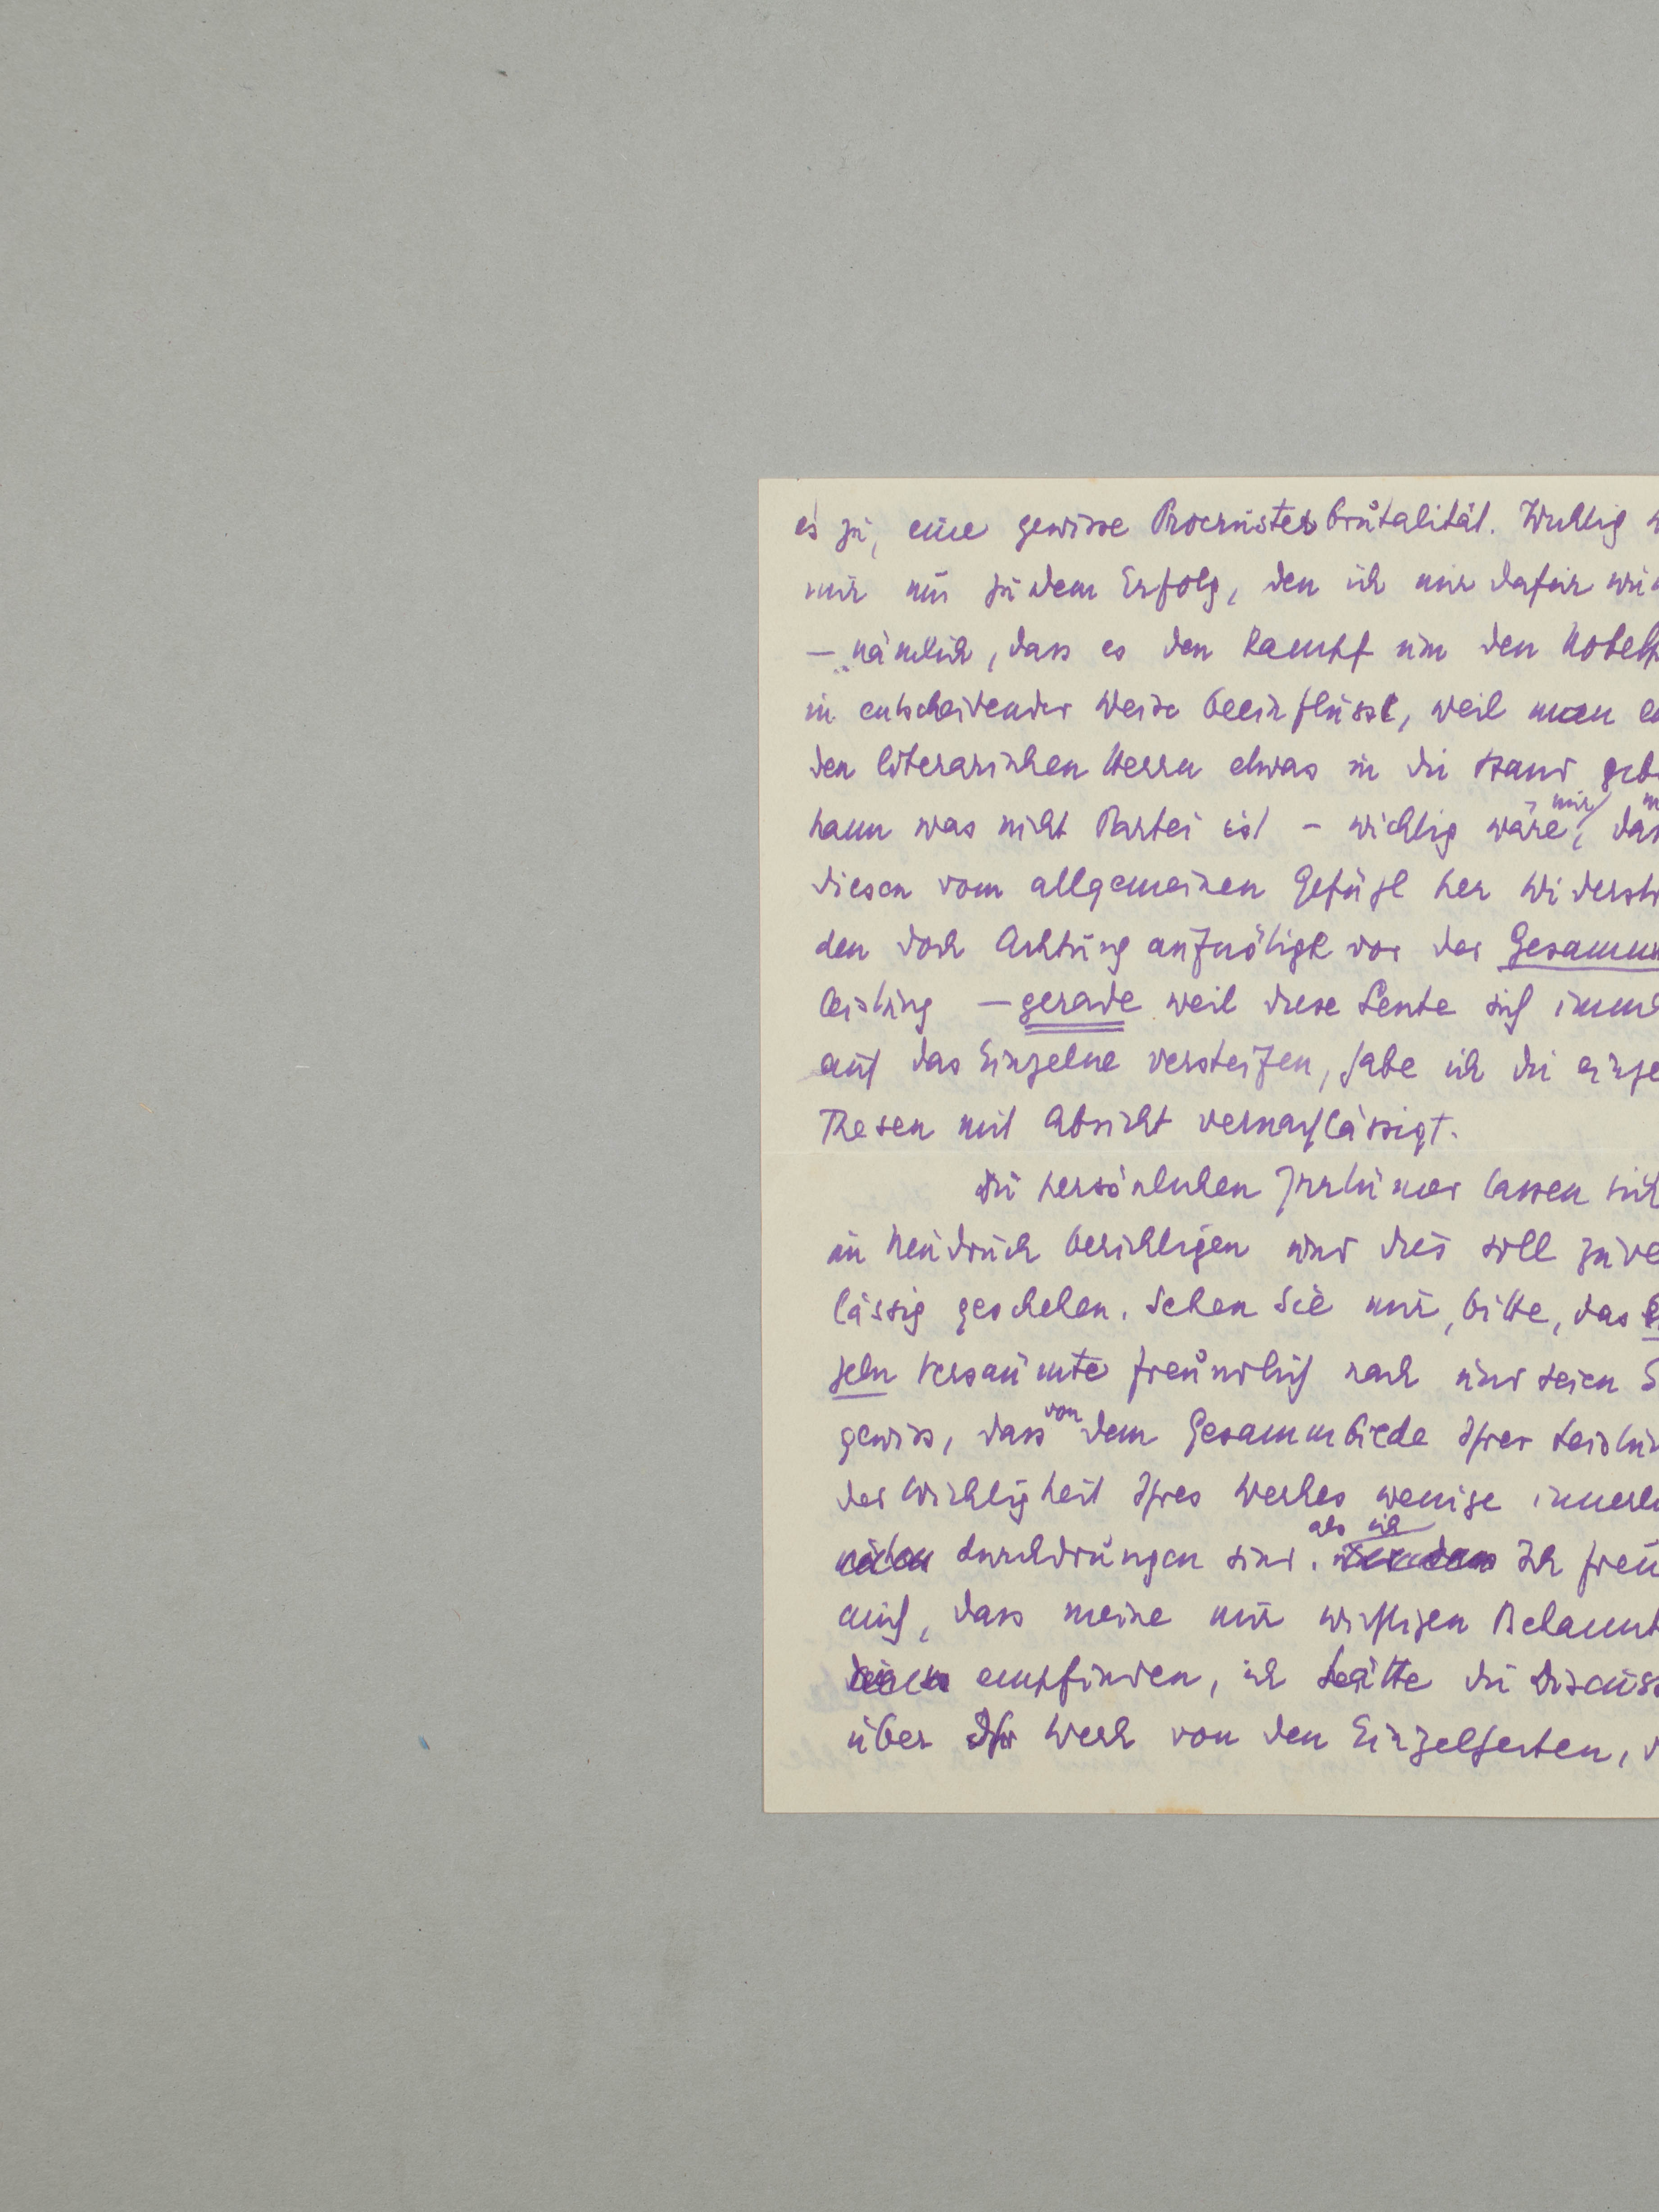 es zu, eine gewisse Procrustesbrutalität. Wichtig w
mir nur zu dem Erfolg, den ich mir dafür wü
— nämlich, dass es den Kampf um den Nobelp
in entscheidender Weise beeinflusst, weil man en
den literarischen Herrn etwas in die Hand geb
kann was nicht Partei ist – wichtig wäre mir, das
diesen vom allgemeinen Gefühl her Widerstr
den doch Achtung aufnötigt vor der Gesamm
leistung — gerade weil diese Leute sich imme
auf das Einzelne versteifen, habe ich die einze
Thesen mit Absicht vernachlässigt.
Die persönlichen Irrtümer lassen sich
im Neudruck berichtigen und dies soll zuve
lässig geschehen. Sehen Sie mir, bitte, das Ei
zeln Versäumte freundlich nach und seien S
gewiss, dass von dem Gesammbilde Ihrer Leistun
der Wichtigkeit Ihres Werkes wenige innerl
durchdrungen sind als ich. Ich freu
mich, dass meine mir wichtigen Bekannt
empfinden, ich hätte die Discuss
über Ihr Werk von den Einzelheiten, d